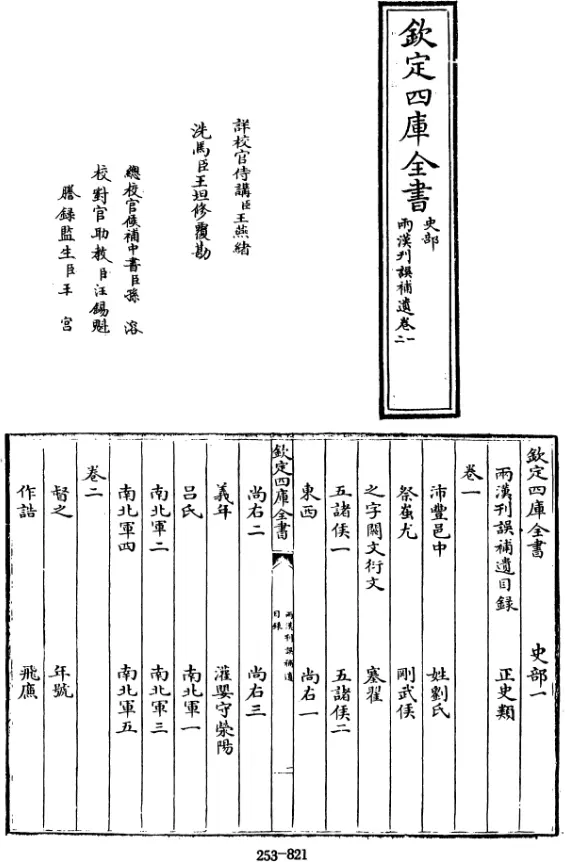 欽定四庫全書
史部
兩漢刋誤補遺卷一
二
詳校官侍講臣王燕緒
洗馬臣王坦修覆勘
總校官候補中書臣孫溶
校對官助教臣汪錫魁
謄錄監生臣王宫
欽定四庫全書 史部一
兩漢刋誤補遺目録 正史類
卷一
沛豐邑中 姓劉氏
祭蚩尤 剛武侯
之字闕文衍文 塞翟
五諸侯一 五諸侯二
東西 尚右一
欽定四庫全書
兩漢刋誤補遺
目録
一
尚右二 尚右三
義年 灌嬰守滎陽
吕氏 南北軍一
南北軍二 南北軍三
南北軍四 南北軍五
卷二
督之 年號
作誥 飛廉
253-821